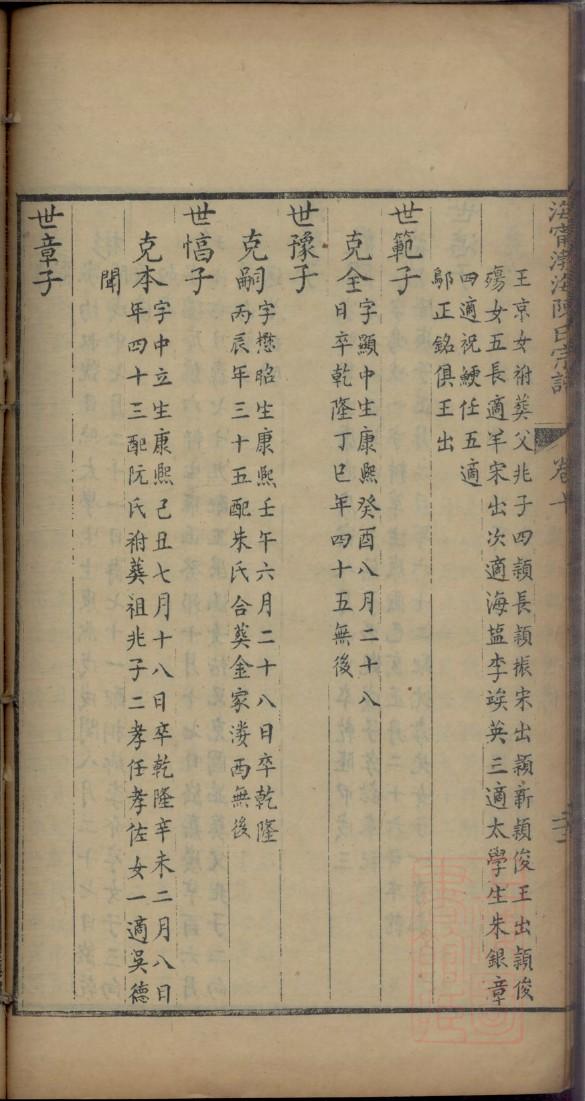 海甯渤海陳氏宗譜
卷十
王京女祔葬父兆子四頴長頴振宋出頴新頴俊王出頴俊
殤女五長適羊宋出次適海鹽李埃英三適太學生朱銀章
四適祝鯁任五適
鄔正銘俱王出
世範子
克全字顯中生康熙癸酉八月二十八
日卒乾隆丁巳年四十五無後
世豫子
克嗣字懋昭生康熙壬午六月二十八日卒乾隆
丙辰年三十五配朱氏合葬金家漊西無後
世愭子
克本字中立生康熙己丑七月十八日卒乾隆辛未二月八日
年四十三配阮氏祔葬祖兆子二孝任孝佐女一適吳德
聞
世章子